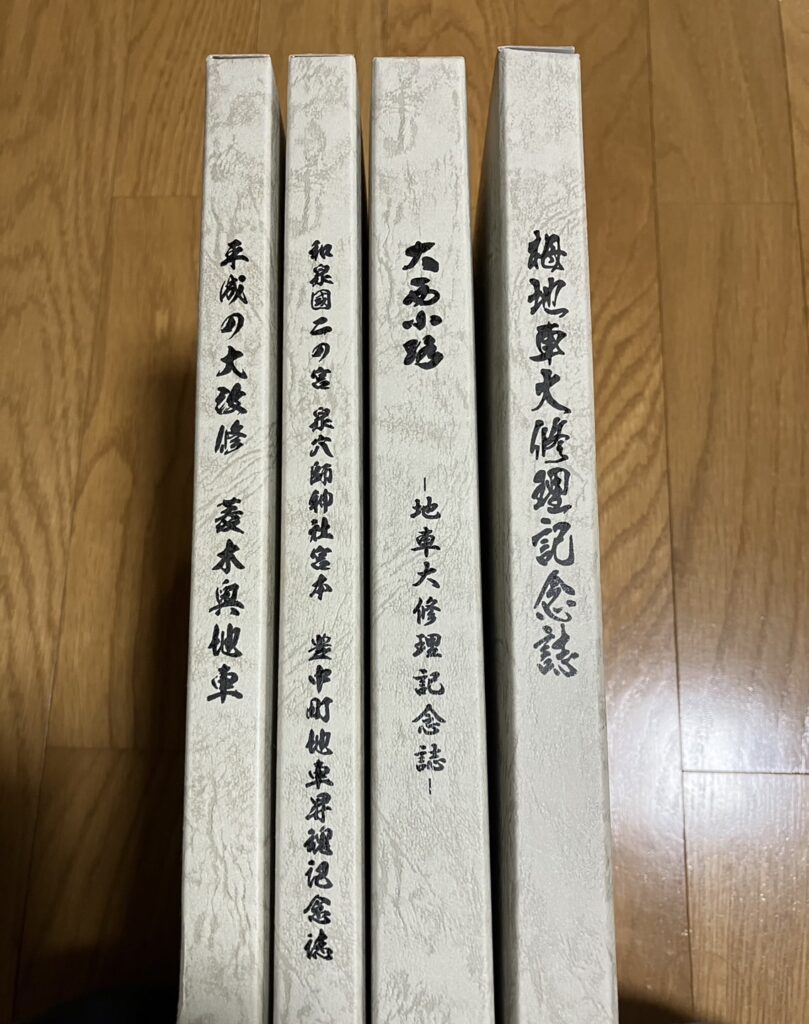 平成の大改修 菱木奥地車
和泉國二の宮 泉穴師神社宮本 豊中町地車昇魂記念誌
大西小路
-地車大修理記念誌-
栂地車大修理記念誌